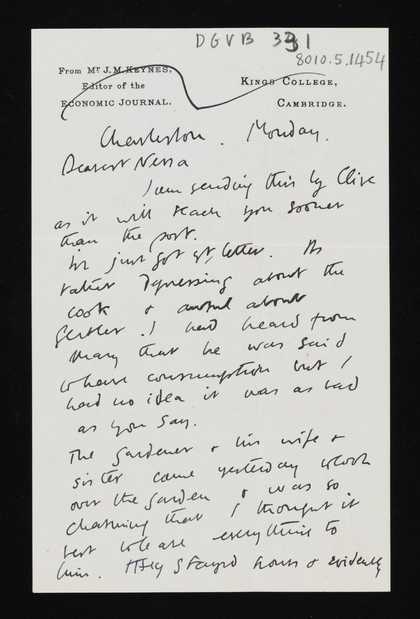 DGVB 331
8010.5.1454
From Mr J. M. KEYNES,
Editor of the
ECONOMIC JOURNAL.
KINGS COLLEGE,
CAMBRIDGE.
Charleston. Monday.
Dearest Nessa
I am sending this by Clive
as it will reach you sooner
than the post.
We just got yr letter. Its
rather depressing about the
cook & awful about
Gertler. I had heard from
Mary that he was said
to have consumption but I
had no idea it was as bad
as you say.
The gardener & his wife &
sister came yesterday to look
over the garden & was so
charming that I thought it
best to leave everything to
him. They stayed hours & evidently